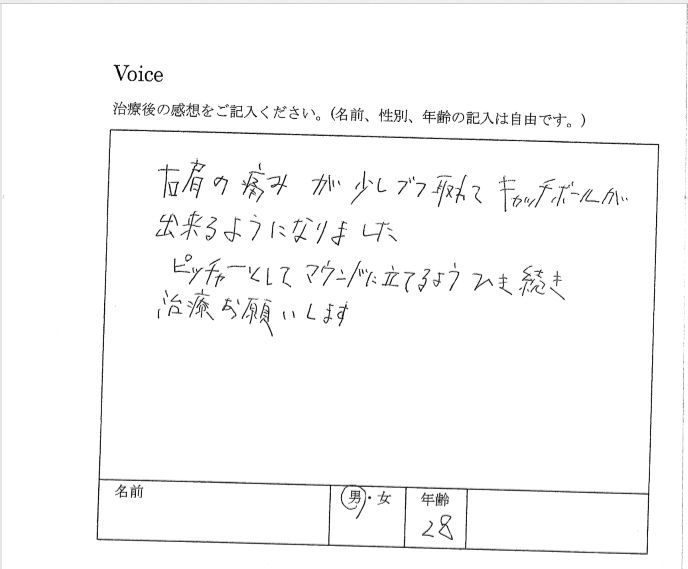 Voice
治療後の感想をご記入ください。(名前、性別、年齢の記入は自由です。)
右肩の痛みが少しづつ取れてキャッチボールが
出来るようになりました
ピッチャーとしてマウンドに立てるようひき続き
治療お願いします
名前 男・女 年齢
28